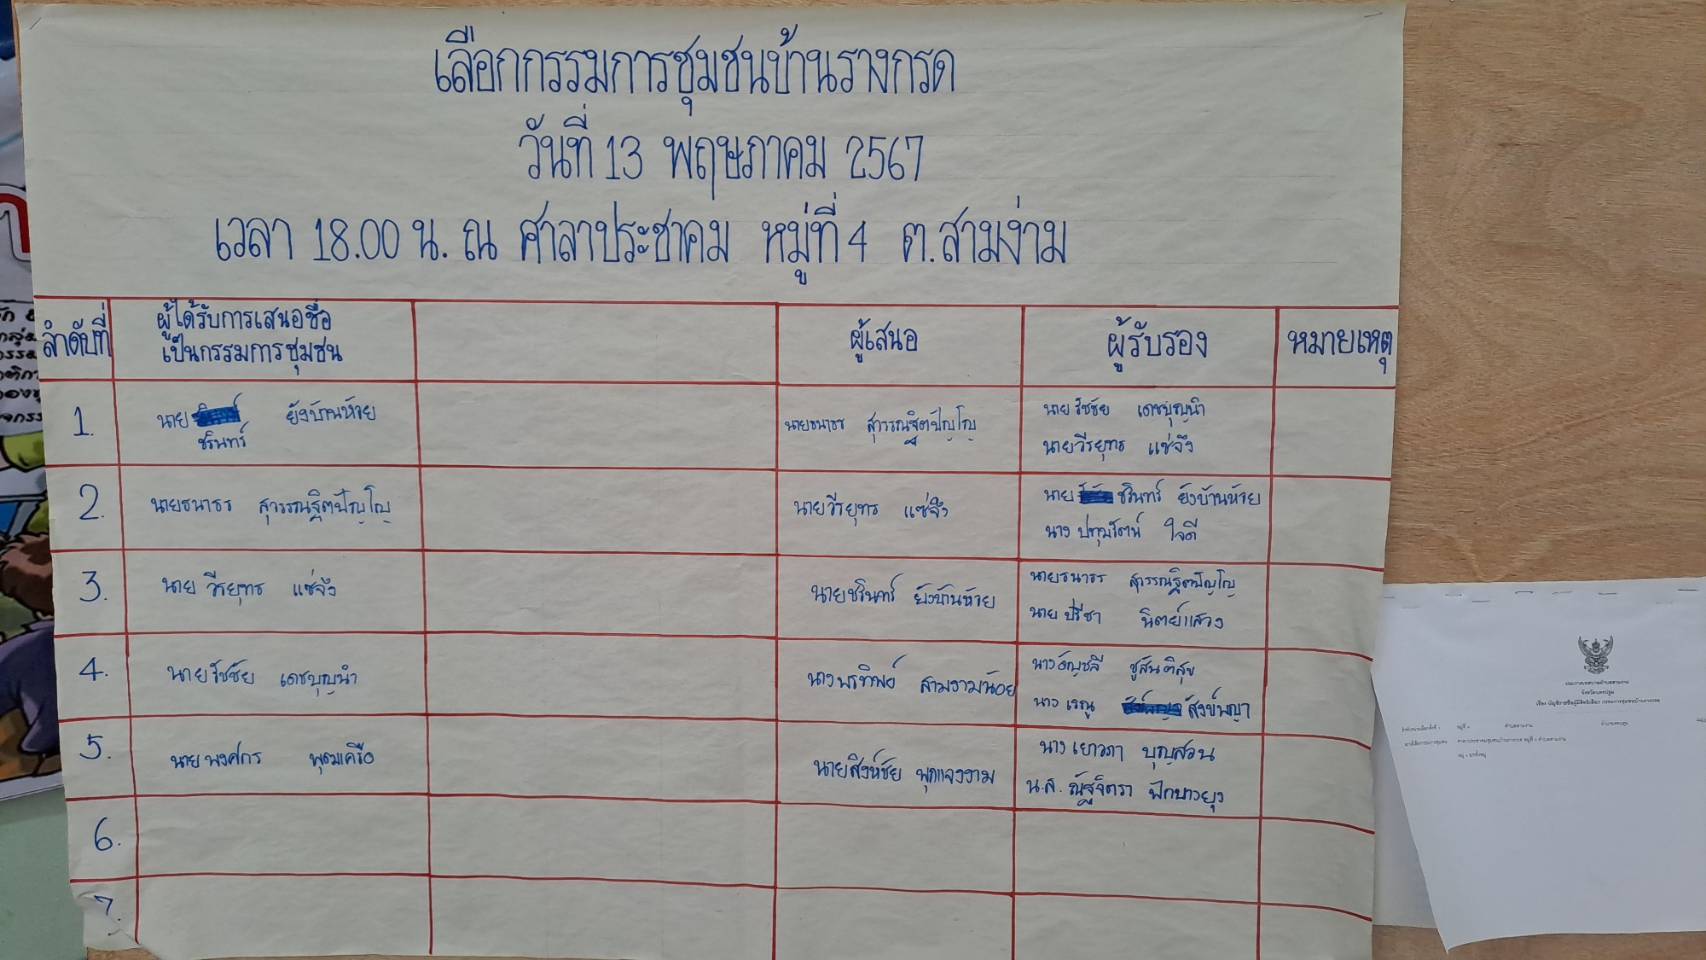 เลือกกรรมการชุมชนบ้านรางกรด
วันที่ 13 พฤษภาคม 2567
เวลา 18.00 น. ณ ศาลาประชาคม หมู่ที่ 4 ต.สามง่าม
ลำดับที่ ผู้ได้รับการเสนอชื่อ ผู้เสนอ ผู้รับรอง หมายเหตุ
เป็นกรรมการชุมชน
1. นาย ยังบ้านห้าย นายธนาธร สุวรรณฐิตปัญโญ นายวัชชัย เดชบุญนำ
ชรินทร์ นายวีรยุทธ แซ่จึง
2. นายธนาธร สุวรรณฐิตปัญโญ นายวีรยุทธ แซ่จึง นาย ชรินทร์ ยังบ้านห้าย
นาง ปทุมรัตน์ ใจดี
3. นาย วีรยุทธ แซ่จึง นายชรินทร์ ยังบ้านห้าย นายธนาธร สุวรรณฐิตปัญโญ
นาย ปรีชา นิตย์แสวง
4. นายวัชชัย เดชบุญนำ นางพรทิพย์ สามงามน้อย นางอัญชลี ชูสันติสุข
นาง เรณู สังข์พญา
5. นายพงศกร พุ่มเครือ นายสิงห์ชัย พุกแจงงาม นางเยาวภา บุญสวน
น.ส. ณัฐจิตรา ฟักบางยุง
6.
7.